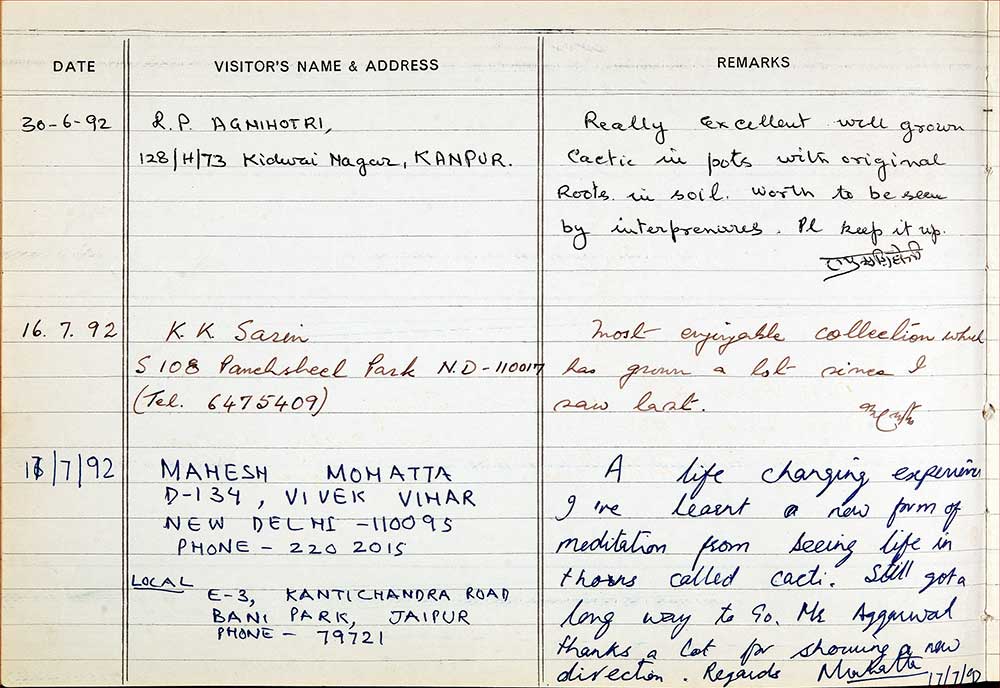 DATE VISITOR'S NAME & ADDRESS REMARKS
30-6-92 R.P. AGNIHOTRI, Really Excellent well grown
128/H/73 Kidwai Nagar, KANPUR. Cactic in pots with original
Roots in soil. worth to be seen
by interprenures. Pl keep it up.
16.7.92 K.K. Sarin Most enjoyable collection which
S 108 Panchsheel Park N.D-110017 has grown a lot since I
(Tel. 6475409) saw last.
/7/92 MAHESH MOHATTA A life changing experience
D-134, VIVEK VIHAR I've learnt a new form of
NEW DELHI -110095 meditation from seeing life in
PHONE - 220 2015 thorns called cacti. Still got a
LOCAL
E-3, KANTICHANDRA ROAD long way to go. Mr Aggarwal
BANI PARK, JAIPUR thanks a lot for showing a new
PHONE - 79721 direction. Regards Mohatta 17/7/92